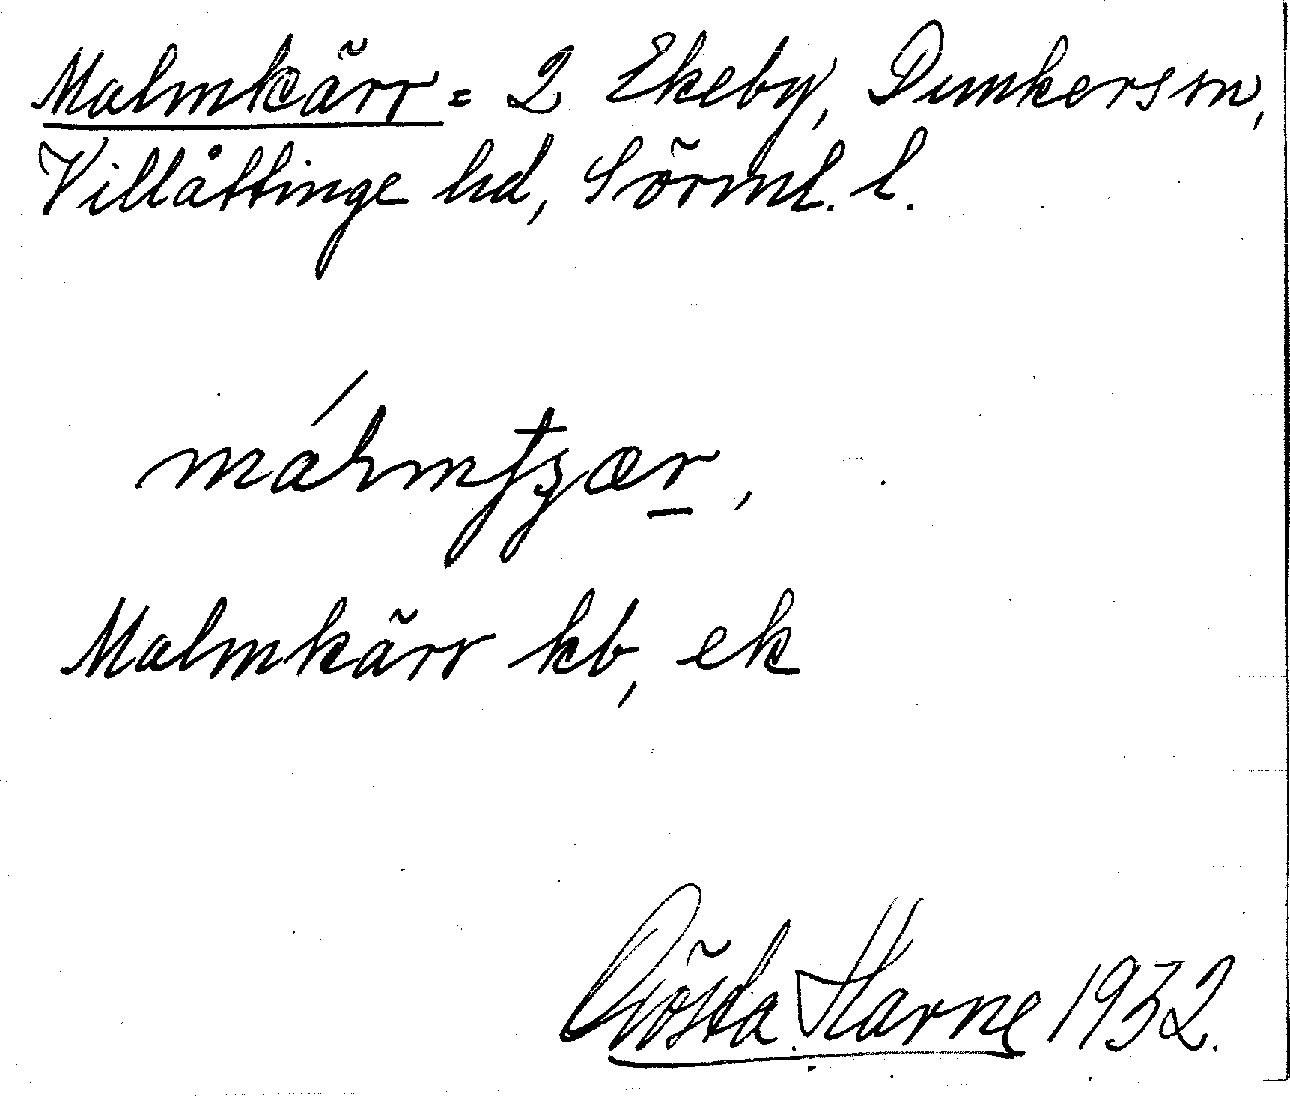 Malmkärr = 2 Ekeby, Dunkers sn,
Villåttinge hd, Sörml. l.
Malmkärr kb, ek
Gösta Harne 1932.